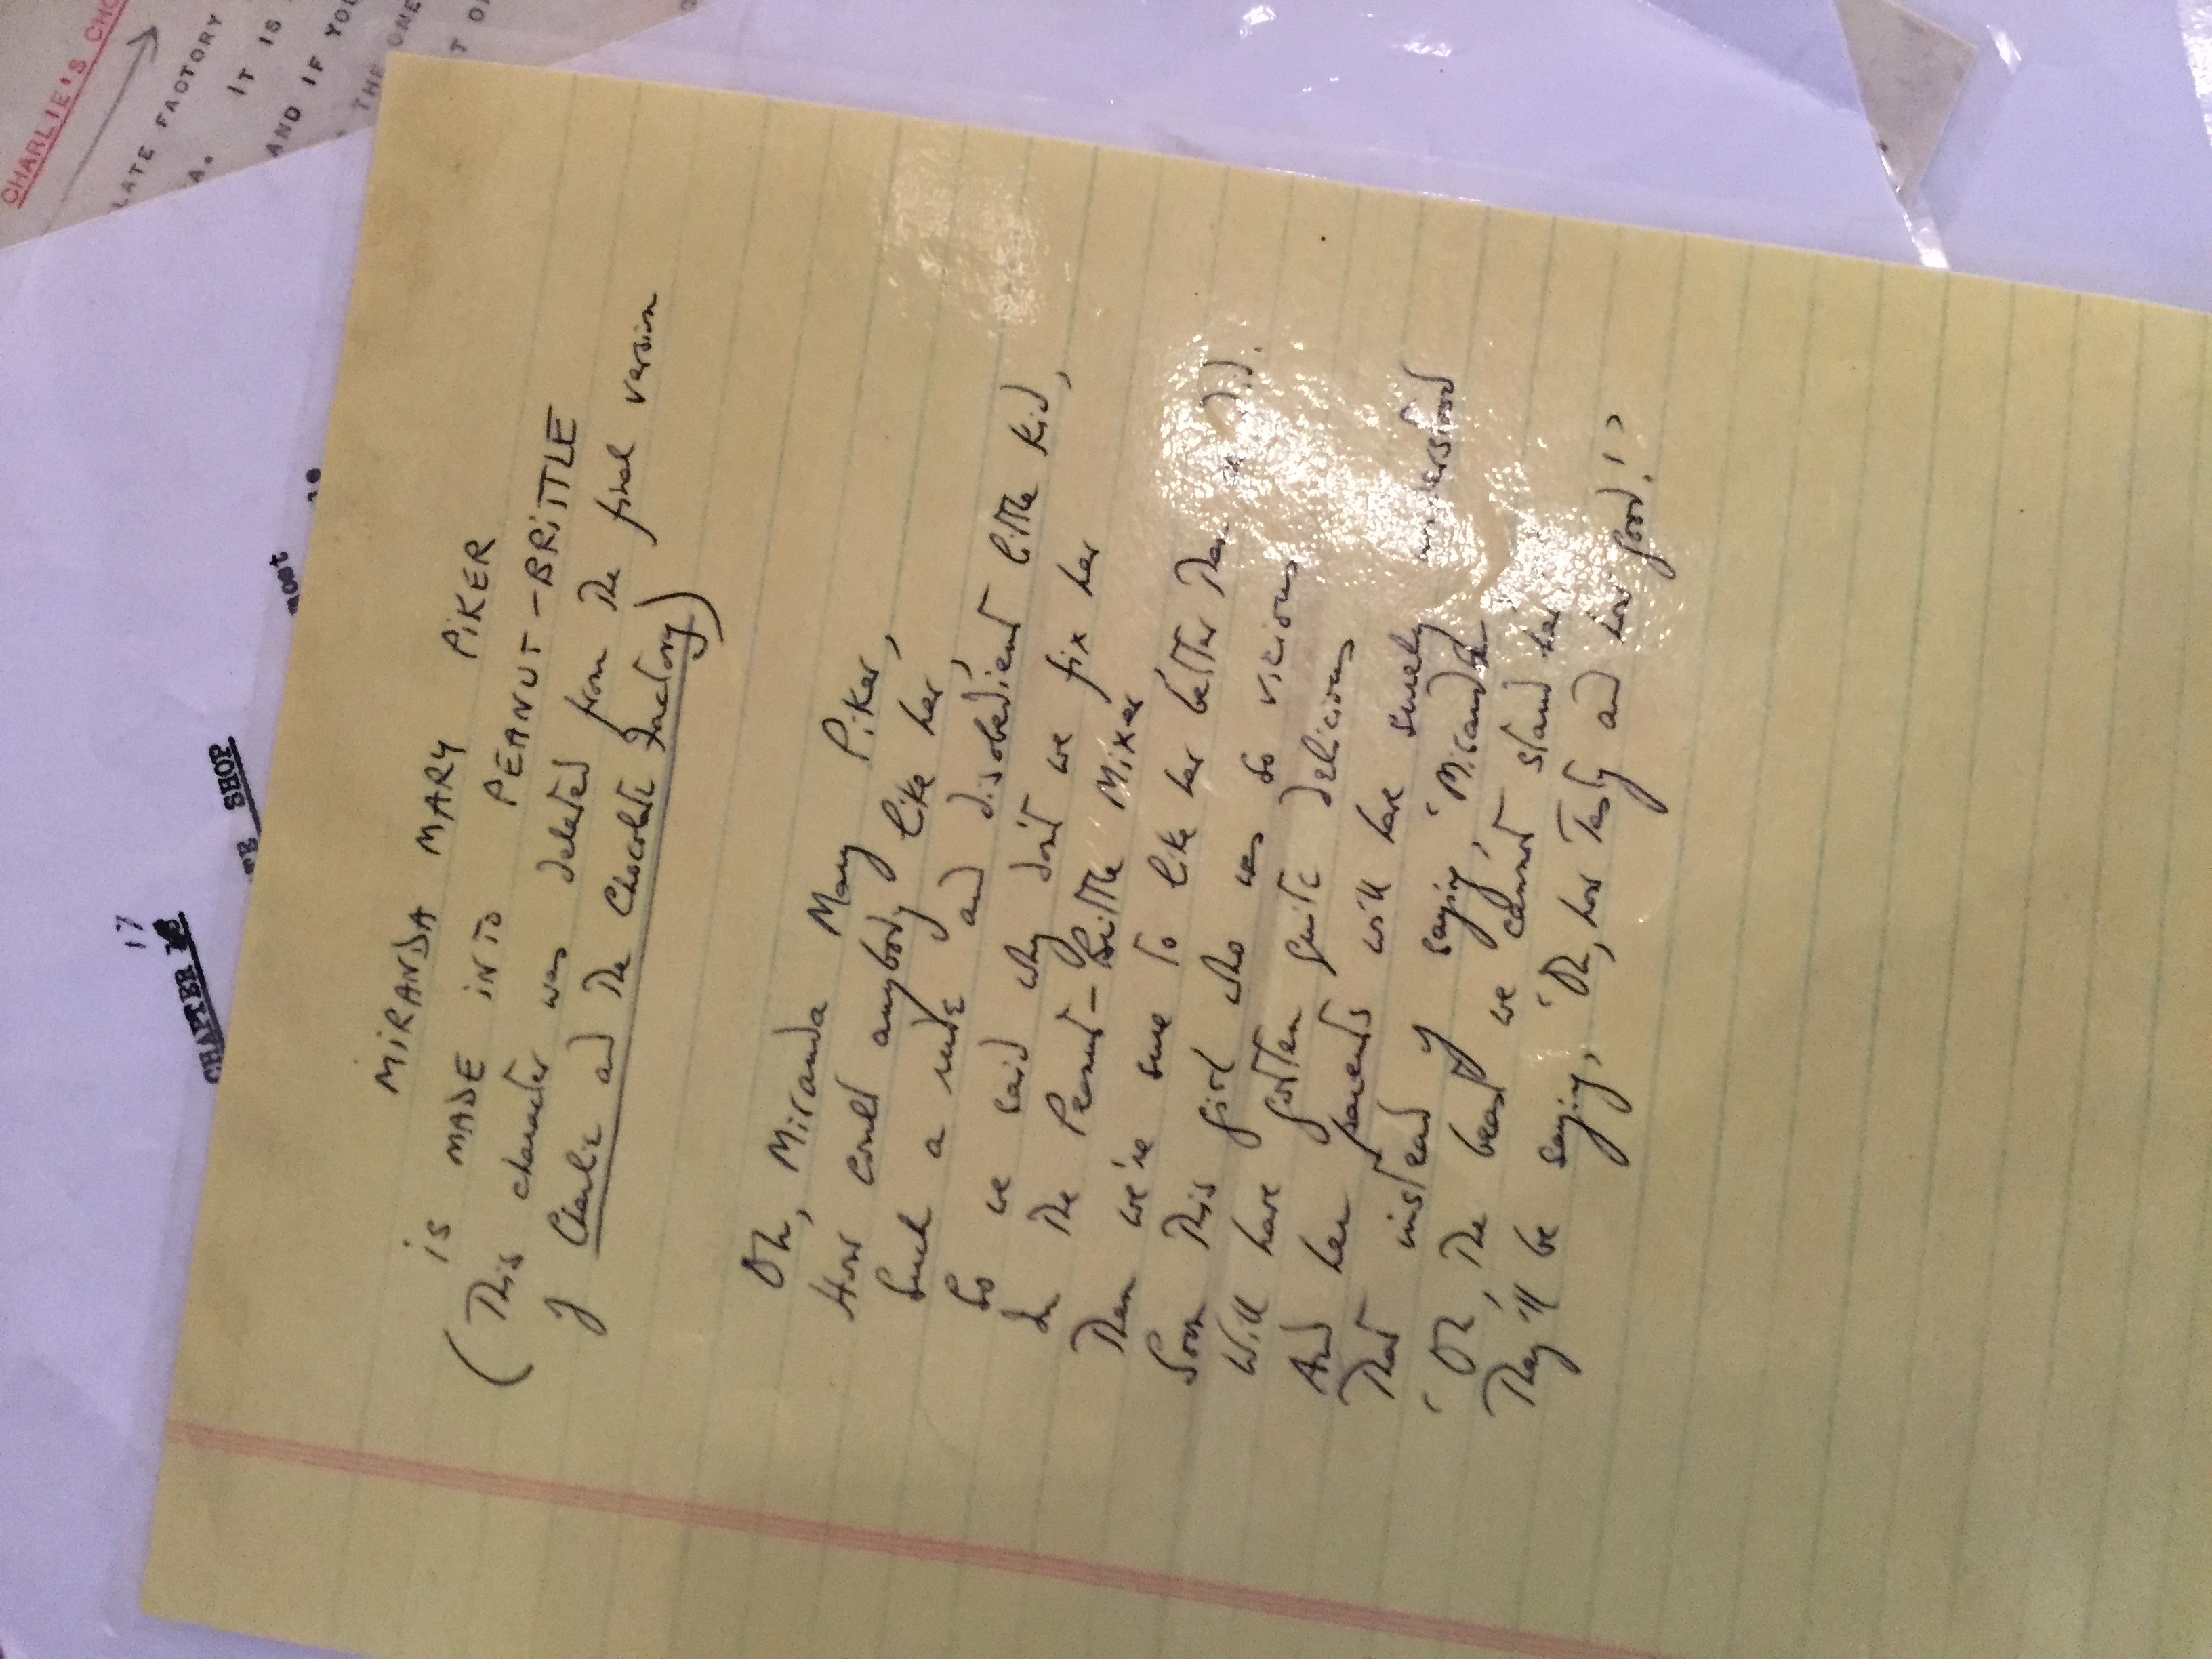 CHARLIE'S
LATE FACTORY
A. IT IS
AND IF YOU
THE ONE
17
CHAPTER
SHOP
most
MIRANDA MARY PIKER
is MADE INTO PEANUT-BRITTLE
(This character was deleted from the final version
of Charlie and the Chocolate Factory)
Oh, Miranda Mary Piker,
How could anybody like her,
Such a rude and disobedient little kid,
So we said why don't we fix her
In the Peanut-Brittle Mixer
Then we're sure to like her better than we did.
Soon this girl who was so vicious
Will have gotten quite delicious
And her parents will have surely understood
That instead of saying, 'Miranda
'Oh, the beast we cannot stand her
They'll be saying, 'Oh, how tasty and how good!'